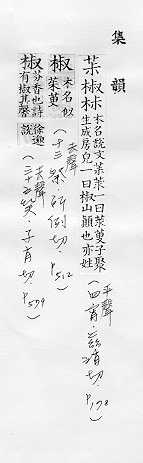 集韻
茮椒朻 木名說文茮茮一曰菉蔓子聚
生成房皃一曰椒山顚也亦姓
(平聲
四宵.茲消切.
P178)
椒 木名似
茱萸
(去聲
子倒切.
P512)
椒 芬香也詩
有椒其馨 徐邈
說
(去聲
三十五笑.子肖切.
P579)